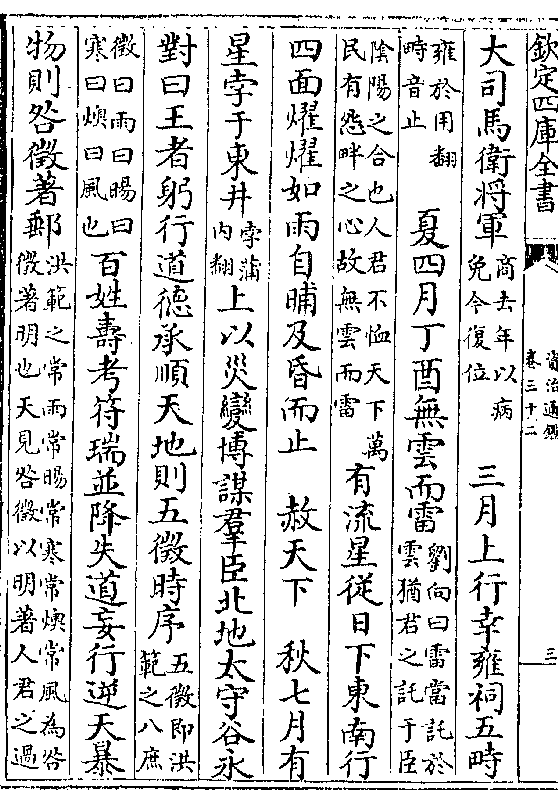 欽定四庫全書
資治通鑑
卷三十二
三
大司馬衛將軍商去年以病免今復位　三月上行幸雍祠五畤
雍於用翻畤音止　夏四月丁酉無雲而雷劉向曰雷當託於雲猶君之託于臣
陰陽之合也人君不恤天下萬民有怨畔之心故無雲而雷　有流星從日下東南行
四面燿燿如雨自晡及昏而止　赦天下　秋七月有
星孛于東井孛蒲內翻上以災變博謀羣臣北地太守谷永
對曰王者躬行道德承順天地則五徵時序五徵即洪範之八庶
徵曰雨曰暘曰寒曰燠曰風也百姓壽考符瑞並降失道妄行逆天暴
物則咎徵著郵洪範之常雨常暘常寒常燠常風為咎徵著明也天見咎徵以明著人君之過